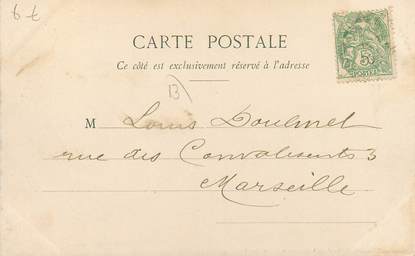 6 €
CARTE POSTALE
Ce côté est exclusivement réservé à l'adresse
5
POSTES
13)
M Louis Doulmet
rue des Convalescents 3
Marseille